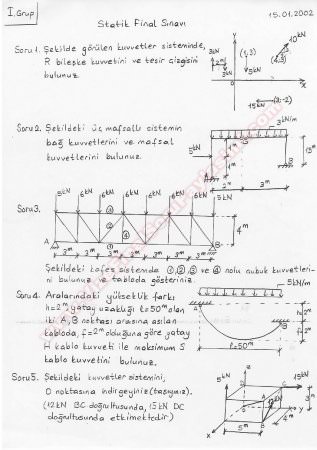 I. Grup
15.01.2002
Statik Final Sınavı
Soru1. Şekilde görülen kuvvetler sisteminde,
R bileşke kuvvetini ve tesir çizgisini
bulunuz.
y
(1,3)
10kN
5kN
x
15kN (3,-2)
Soru2. Şekildeki üç mafsallı sistemin
bağ kuvvetlerini ve mafsal
kuvvetlerini bulunuz.
3kN/m
5kN
A
B
2m
3m
Soru3.
5kN 6kN 6kN 6kN 6kN 6kN 5kN
4m
A
B
3m 3m 3m 3m 3m 3m
Şekildeki kafes sistemde ①,②,③ ve ④ nolu çubuk kuvvetleri-
ni bulunuz ve tabloda gösteriniz.
Soru4. Aralarındaki yükseklik farkı
h=2m, yatay uzaklığı l=50m olan
iki A,B noktası arasına asılan
kabloda, f=2m olduğuna göre yatay
H kablo kuvveti ile maksimum S
kablo kuvvetini bulunuz.
5kN/m
A
B
l=50m
Soru5. Şekildeki kuvvetler sistemini,
O noktasına indirgeyiniz (taşıyınız).
(12kN BC doğrultusunda, 15kN DC
doğrultusunda etkimektedir)
z
D
C
15kN
y
3m
12kN
4m
A
B
x
5m